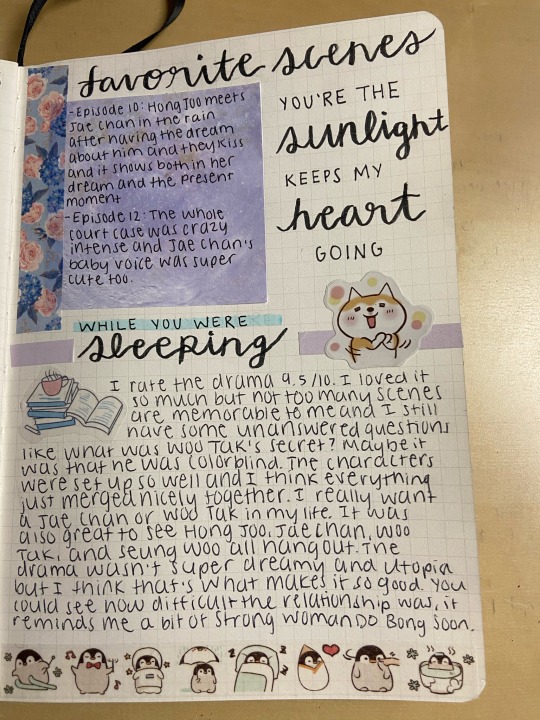 favorite scenes
-Episode 10: Hong Joo meets
Jae Chan in the rain
after having the dream
about him and they kiss
and it shows both in her
dream and the present
moment
-Episode 12: The whole
court case was crazy
intense and Jae Chan's
baby voice was super
cute too.
YOU'RE THE
sunlight
KEEPS MY
heart
GOING
WHILE YOU WERE
sleeping
I rate the drama 9.5/10. I loved it
so much but not too many scenes
are memorable to me and I still
have some unanswered questions
like what was Woo Tak's secret? Maybe it
was that he was colorblind. The characters
were set up so well and I think everything
just merged nicely together. I really want
a Jae Chan or Woo Tak in my life. It was
also great to see Hong Joo, Jae Chan, Woo
Tak, and Seung Woo all hang out. The
drama wasn't super dreamy and utopia
but I think that's what makes it so good. You
could see how difficult the relationship was, it
reminds me a bit of Strong Woman Do Bong Soon.